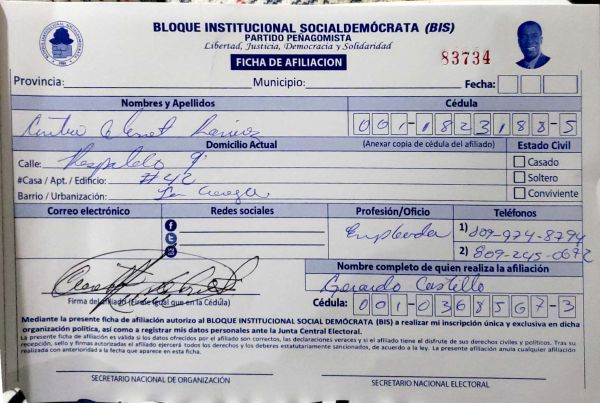 BLOQUE INSTITUCIONAL SOCIALDEMÓCRATA (BIS)
PARTIDO PEÑAGOMISTA
Libertad, Justicia, Democracia y Solidaridad
FICHA DE AFILIACION
83734
Provincia: Municipio: Fecha:
Nombres y Apellidos Cédula
001-1823188-5
Domicilio Actual (Anexar copia de cédula del afiliado) Estado Civil
Calle: Respaldo 9 Casado
#Casa / Apt. / Edificio: #42 Soltero
Barrio / Urbanización: La Cienega Conviviente
Correo electrónico Redes sociales Profesión/Oficio Teléfonos
Empleada 1) 809-974-8794
2) 809-245-0672
Nombre completo de quien realiza la afiliación
Gerardo Castillo
Firma del afiliado (Firme igual que en la Cédula) Cédula: 001-0368567-3
Mediante la presente ficha de afiliación autorizo al BLOQUE INSTITUCIONAL SOCIAL DEMÓCRATA (BIS) a realizar mi inscripción única y exclusiva en dicha
organización política, así como a registrar mis datos personales ante la Junta Central Electoral.
La presente ficha de afiliación es valida si los datos ofrecidos por el afiliado son correctos, las declaraciones veraces y si el afiliado tiene el disfrute de sus derechos civiles y políticos. Tras su
recepción, sello y firmas autorizadas el afiliado ejercerá todos los derechos y los deberes estatutariamente sancionados, de acuerdo a la ley. La presente afiliación anula cualquier afiliación
realizada con anterioridad a la fecha que aparece en esta ficha.
SECRETARIO NACIONAL DE ORGANIZACIÓN SECRETARIO NACIONAL ELECTORAL